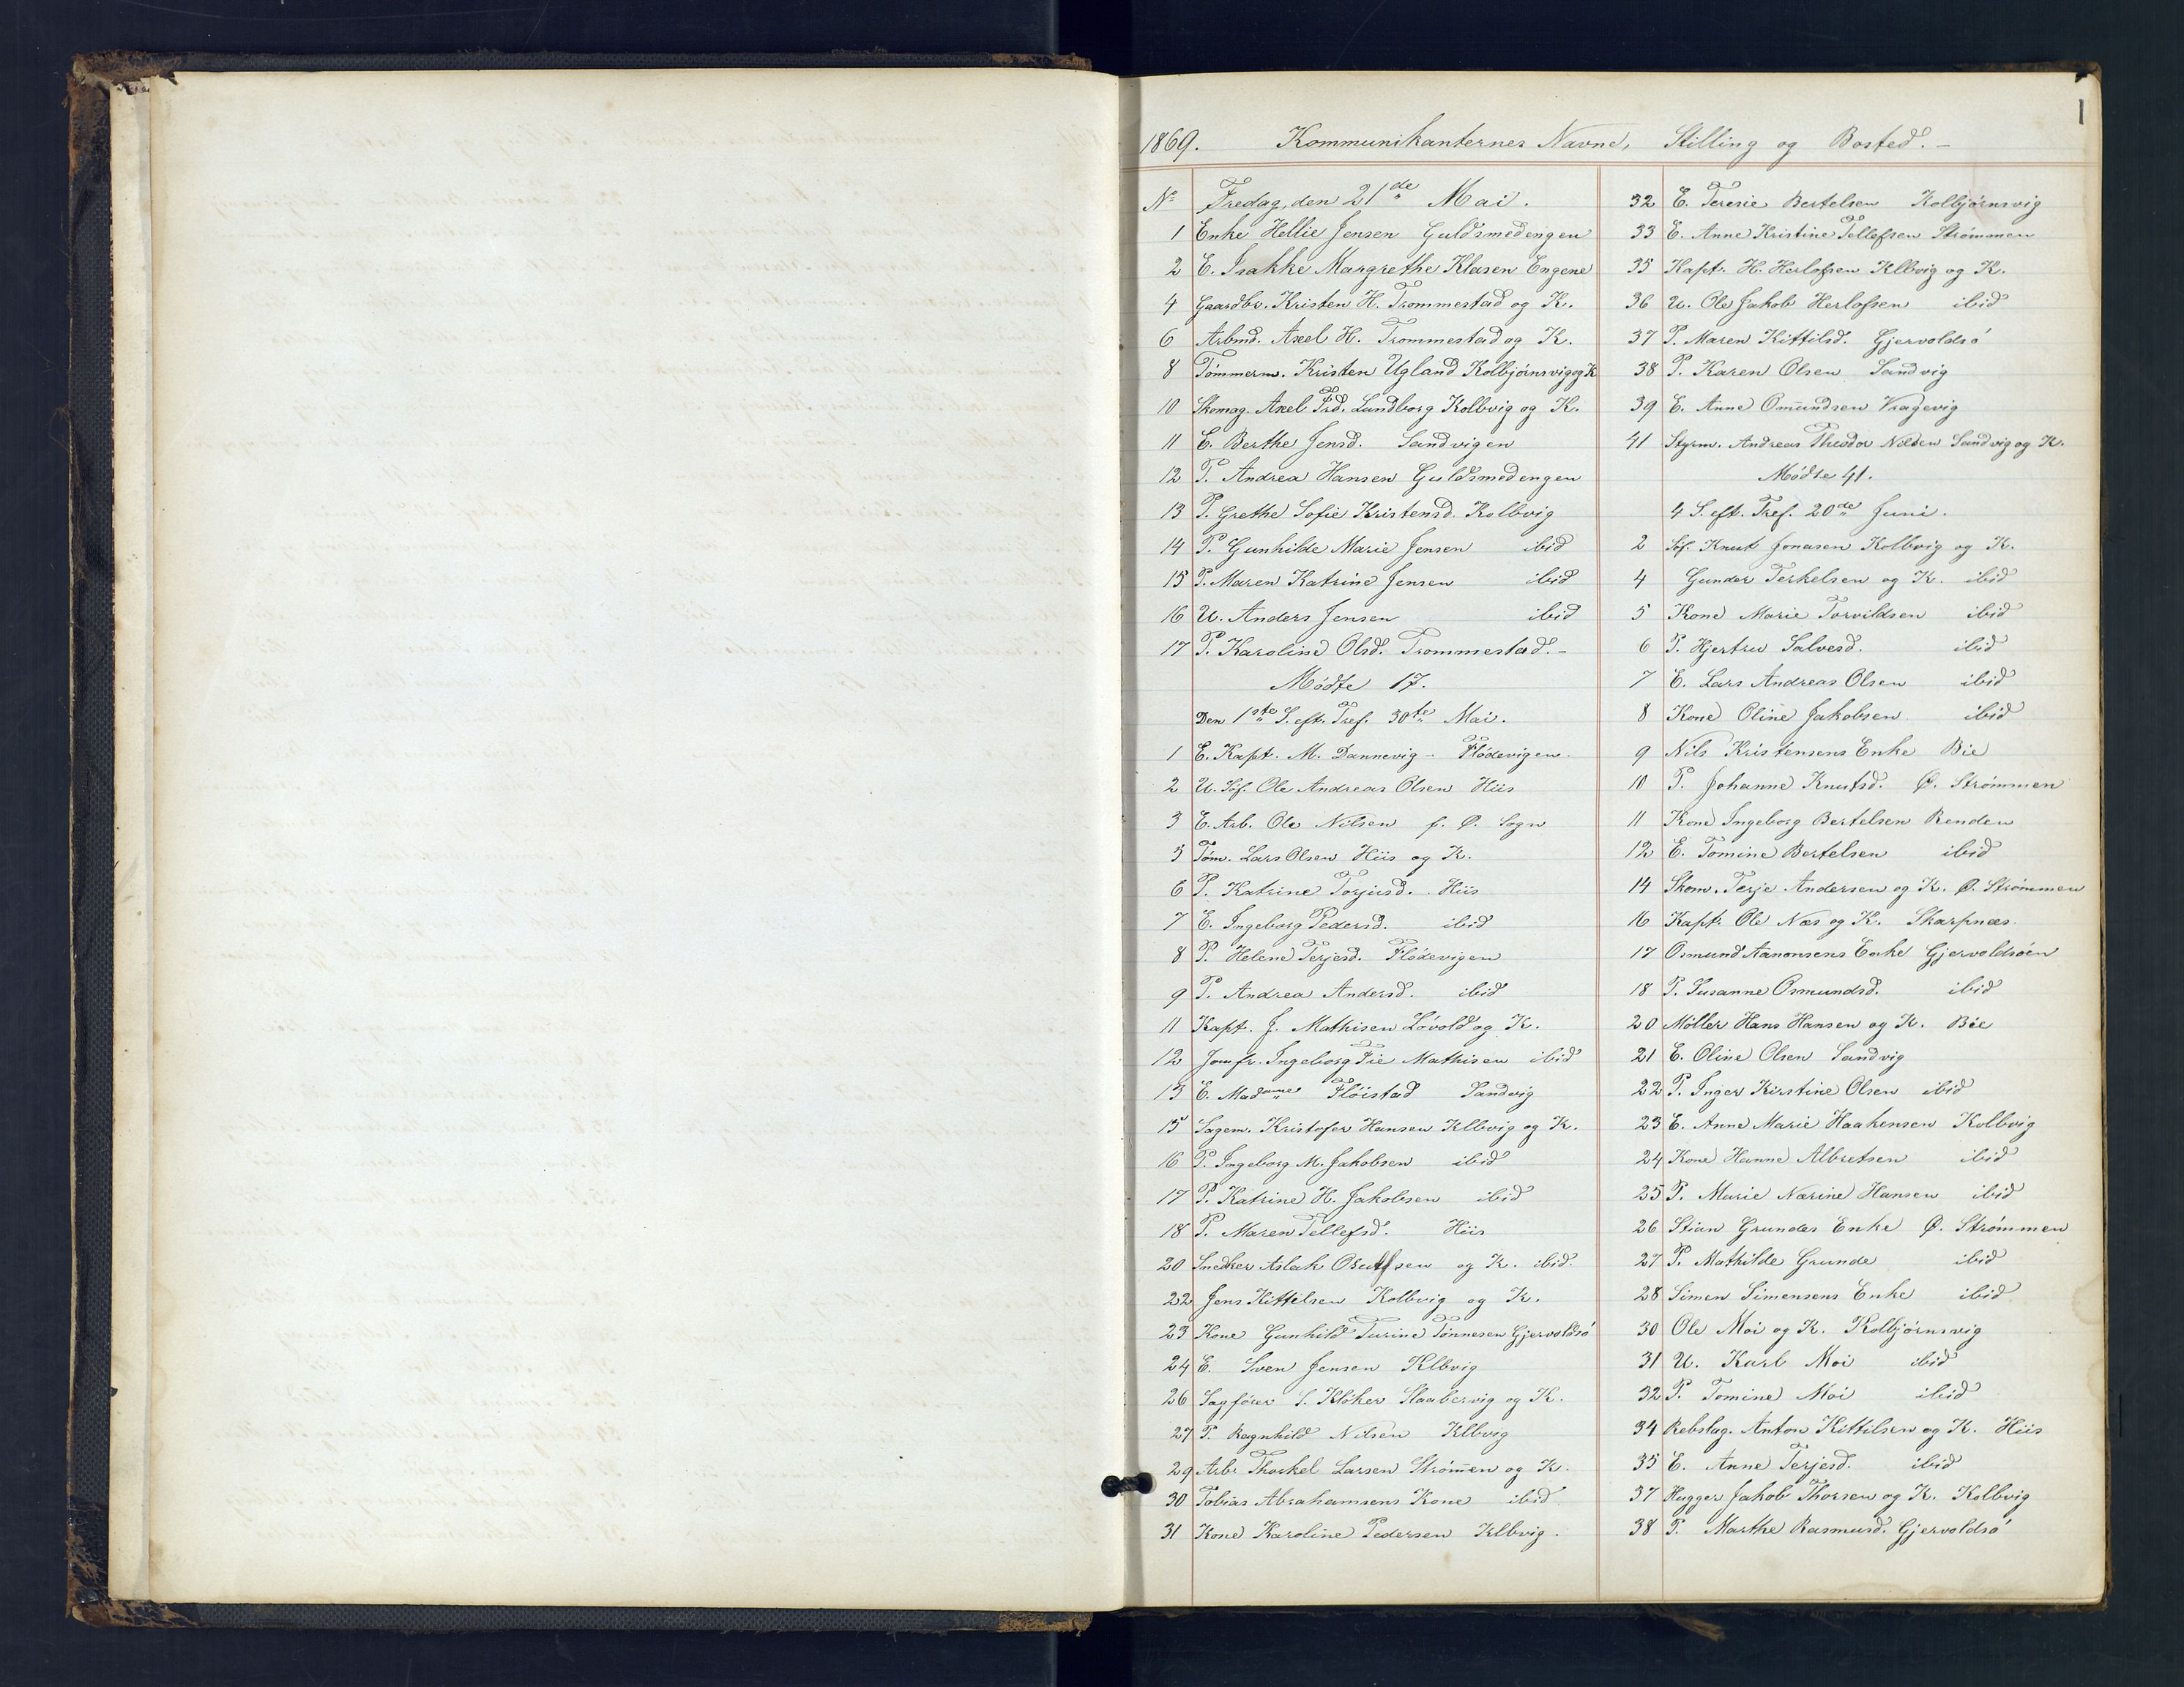 1
1869. Kommunikanternes Navne, Stilling og Bosted. -
No Fredag, den 21de Mai.
1 Enke Hellie Jensen Guldsmedengen
2 E. Isakke Margrethe Klasen Engene
4 Gaardbr. Kristen H. Trommestad og K.
6 Arbmd. Axel H. Trommestad og K.
8 Tømmerm. Kristen Ugland Kolbjørnsvig og K
10 Skomag. Axel Frd. Lundborg Kolbvig og K.
11 E. Berthe Jensd. Sandvigen
12 P. Andrea Hansen Guldsmedengen
13 P. Grethe Sofie Kristensd. Kolbvig
14 P. Gunhilde Marie Jensen ibid
15 P. Maren Katrine Jensen ibid
16 U. Anders Jensen ibid
17 P. Karoline Olsd. Trommestad. -
Mødte 17.
Den 1ste S. eft. Tref. 30te Mai.
1 E. Kapt. M. Dannevig - Flødevigen
2 U. Søf. Ole Andreas Olsen Hiis
3 E. Arb. Ole Nilsen f. Ø. Sogn
5 Tøm. Lars Olsen Hiis og K.
6 P. Katrine Torjusd. Hiis
7 E. Ingeborg Pedersd. ibid
8 P. Helene Terjesd. Flødevigen
9 P. Andrea Andersd. ibid
11 Kapt. J. Mathisen Løvold og K.
12 Jomfr. Ingeborg Fie Mathisen ibid
13 E. Madame Fløistad Sandvig
15 Sagem. Kristofer Hansen Klbvig og K.
16 P. Ingeborg M. Jakobsen ibid
17 P. Katrine H. Jakobsen ibid
18 P. Maren Tellefsd. Hiis
20 Snedker Aslak Osulfsen og K. ibid.
22 Jens Kittelsen Kolbvig og K.
23 Kone Gunhild Turine Tønnesen Gjervoldsø
24 E. Sven Jensen Klbvig
26 Sagfører S. Kløker Slaabervig og K.
27 P. Ragnhild Nilsen Klbvig
29 Arbr. Thorkel Larsen Strøm̅en og K.
30 Tobias Abrahamsens Kone ibid
31 Kone Karoline Pedersen Klbvig.
32 E. Teresie Bertelsen Kolbjørnsvig
33 E. Anne Kristine Tellefsen Strømmen
35 Kapt. H. Herlofsen Klbvig og K.
36 U. Ole Jakob Herlofsen ibid
37 P. Maren Kittilsd. Gjervoldsø
38 P. Karen Olsen Sandvig
39 E. Anne Om̅undsen Vragevig
41 Styrm. Andreas Theodor Nielsen Sandvig og K.
Mødte 41.
4 S. eft. Tref. 20de Juni.
2 Søf. Knut Jonasen Kolbvig og K.
4 Gunder Terkelsen og K. ibid
5 Kone Marie Torvildsen ibid
6 P. Hjertru Salvesd. ibid
7 E. Lars Andreas Olsen ibid
8 Kone Oline Jakobsen ibid
9 Nils Kristensens Enke Bie
10 P. Johanne Knutsd. Ø. Strømmen
11 Kone Ingeborg Bertelsen Renden
12 E. Tomine Bertelsen ibid
14 Skom. Terje Andersen og K. Ø. Strømmen
16 Kapt. Ole Næs og K. Skarpnæs
17 Osmund Aanonsens Enke Gjervoldsøen
18 P. Susanne Osmundsd. ibid
20 Møller Hans Hansen og K. Bie
21 E. Oline Olsen Sandvig
22 P. Inger Kirstine Olsen ibid
23 E. Anne Marie Haakensen Kolbvig
24 Kone Hanne Albretsen ibid
25 P. Marie Narine Hansen ibid
26 Stian Grundes Enke Ø. Strømmen
27 P. Mathilde Grunde ibid
28 Simen Simensens Enke ibid
30 Ole Moi og K. Kolbjørnsvig
31 U. Karl Moi ibid
32 P. Tomine Moi ibid
34 Rebslag. Anton Kittilsen og K. Hiis
35 E. Anne Terjesd. ibid
37 Hugger Jakob Thorsen og K. Kolbvig
38 P. Marthe Rasmusd. Gjervoldsø